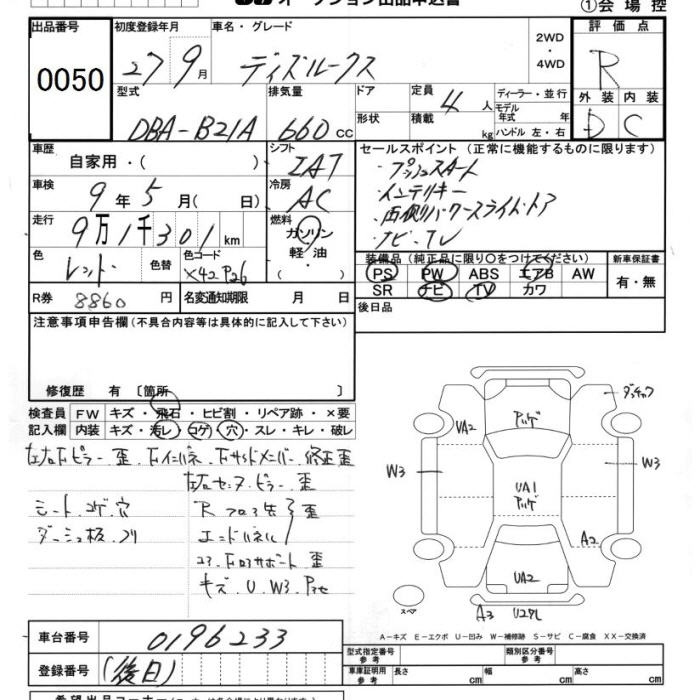 オークション出品申込書
①会場控
出品番号
0050
初度登録年月
27 9月
車名・グレード
ディズルークス
2WD
・
4WD
評価点
R
外装 内装
D C
型式
DBA-B21A
排気量
660 cc
ドア
形状
定員
4人
積載
kg
ディーラー・並行
モデル年式 年
ハンドル 左・右
車歴
自家用・( )
シフト
IAT
車検
9年5月( 日)
冷房
AC
走行
9万1千301km
燃料
ガソリン
軽・油
・( )
色
レッド
色替
色コード
X42P26
R券 8860円
名変通知期限 月 日
セールスポイント(正常に機能するものに限ります)
・プッシュスタート
・インテリキー
・両側パワースライドドア
・ナビ・TV
装備品(純正品に限り○をつけてください)
PS PW ABS エアB AW
SR ナビ TV カワ
新車保証書
有・無
後日品
注意事項申告欄(不具合内容等は具体的に記入して下さい)
修復歴 有〔箇所 〕
検査員
記入欄
FW キズ・飛石・ヒビ割・リペア跡・×要
内装 キズ・汚レ・コゲ・穴・スレ・キレ・破レ
シート コゲ 穴
キズ U W3
ダッシュ板
W3
UA2
アハゲ
UA1
アハゲ
W3
A2
UA2
スペア
A3
A-キズ E-エクボ U-凹み W-補修跡 S-サビ C-腐食 XX-交換済
車台番号
0196233
登録番号
(後日)
型式指定番号
参考
類別区分番号
参考
車庫証明用
参考
長さ cm 幅 cm 高さ cm